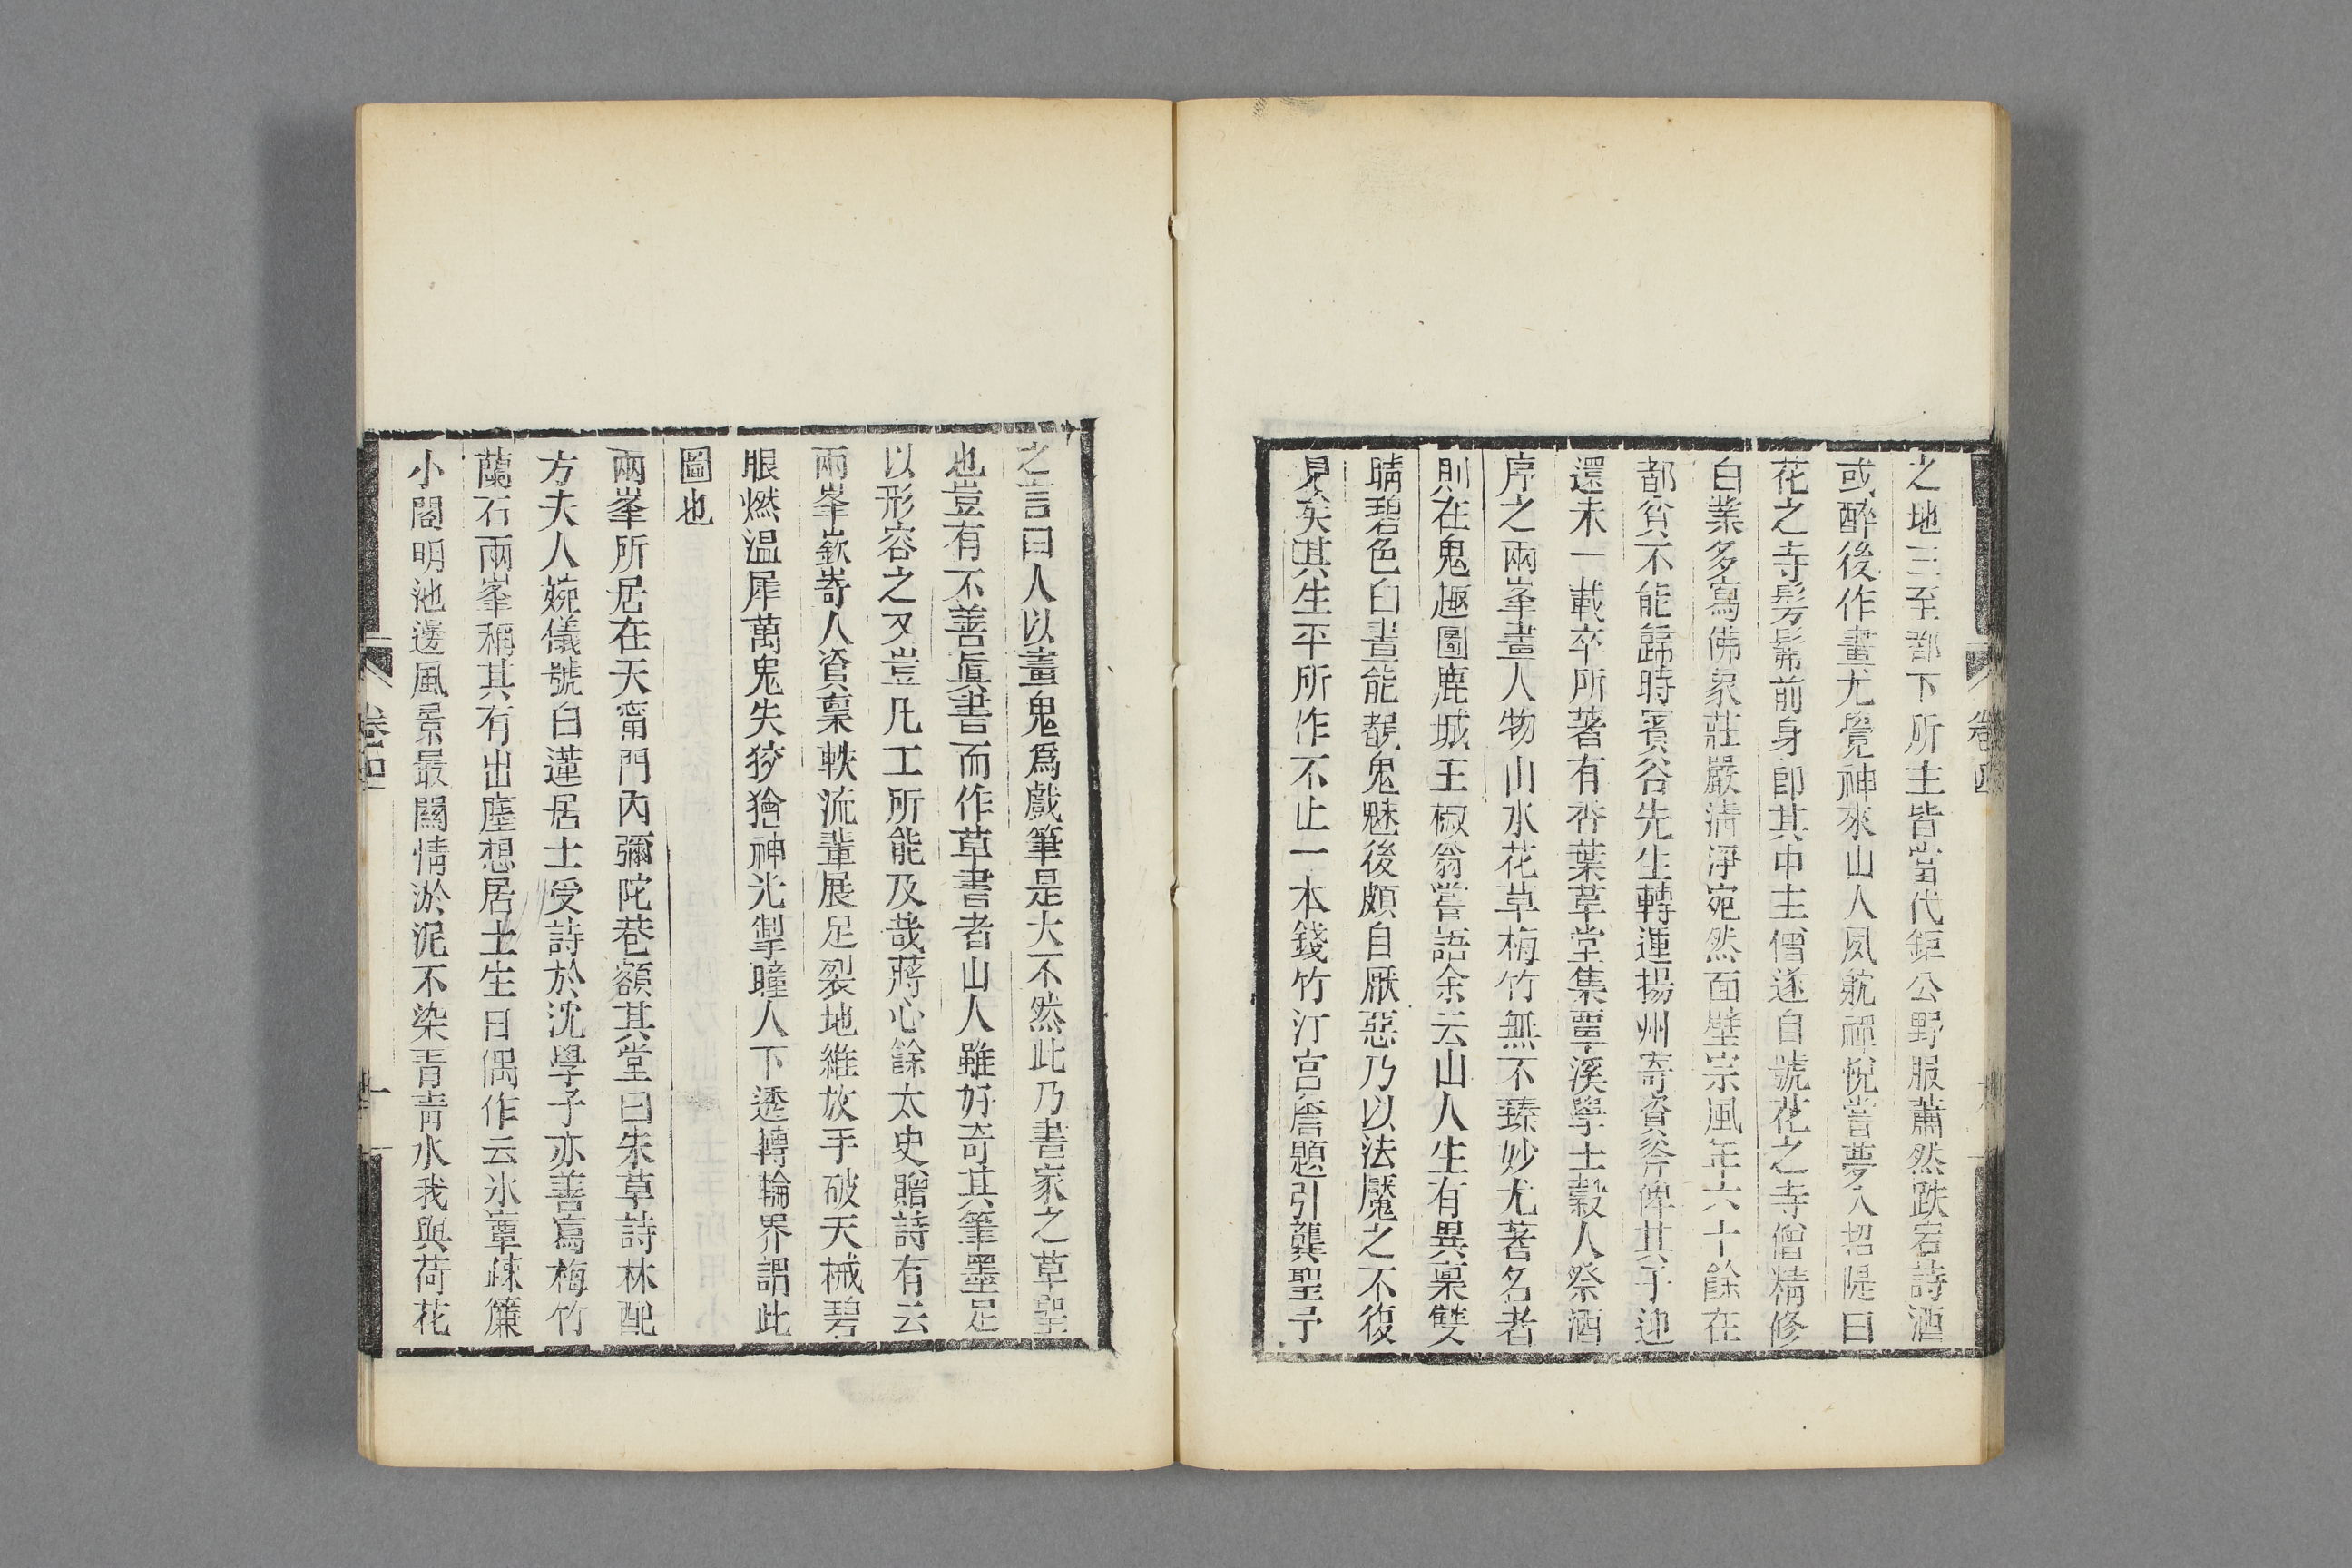 之地三至都下所主皆當代鉅公野服蕭然跌宕詩酒
或醉後作畫尤覺神來山人夙躭禪悅嘗夢入招隄曰
花之寺髣髴前身卽其中主僧遂自號花之寺僧精修
白業多寫佛象莊嚴淸淨宛然面壁宗風年六十餘在
都貧不能歸時賓谷先生轉運揚州寄資斧俾其子迎
還未一載卒所著有香葉草堂集覃溪學士穀人祭酒
序之兩峯畫人物山水花草梅竹無不臻妙尤著名者
則在鬼趣圖鹿城王椒翁嘗語余云山人生有異稟雙
睛碧色白晝能覩鬼魅後頗自厭惡乃以法魘之不復
見矣其生平所作不止一本錢竹汀宮詹題引龔聖予
之言曰人以畫鬼爲戲筆是大不然此乃書家之草聖
也豈有不善眞書而作草書者山人雖好奇其筆墨足
以形容之又豈凡工所能及哉蔣心餘太史贈詩有云
兩峯嶔嵜人資稟軼流輩展足裂地維放手破天械碧
眼燃温犀萬鬼失狡獪神光掣瞳人下透轉輪界謂此
圖也
兩峯所居在天甯門內彌陀巷額其堂曰朱草詩林配
方夫人婉儀號白蓮居士受詩於沈學子亦善寫梅竹
蘭石兩峯稱其有出塵想居士生日偶作云氷簟疎簾
小閣明池邊風景最關情淤泥不染靑靑水我與荷花
卷四
卷四